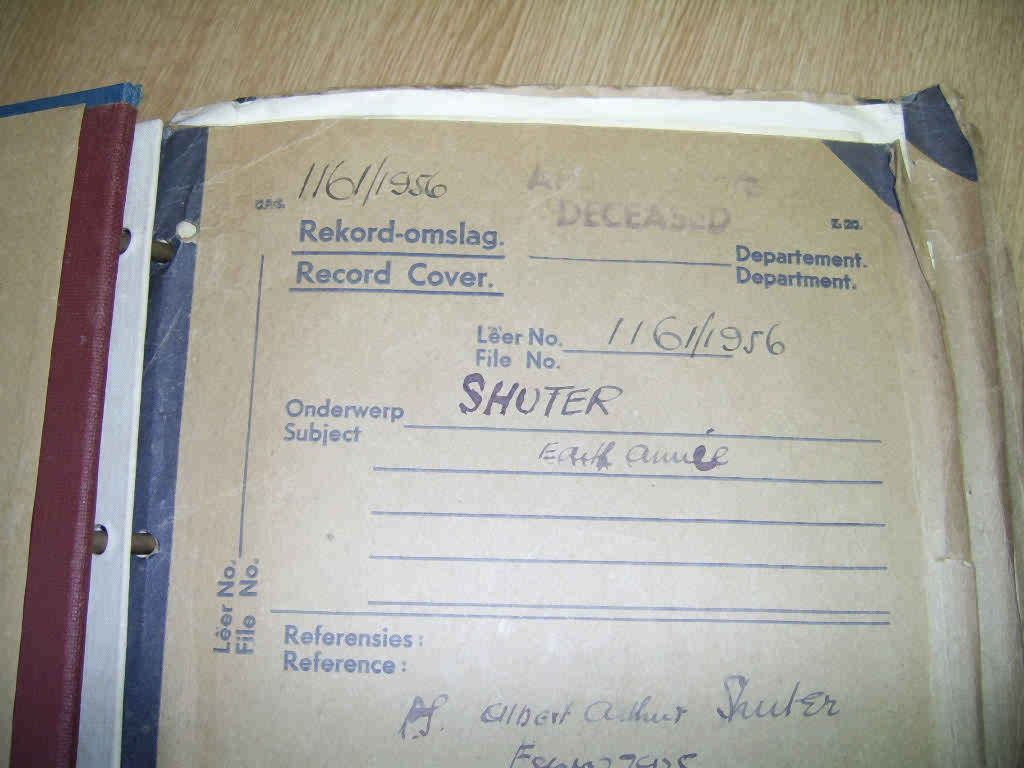 1161/1956
DECEASED
Z. 20.
Rekord-omslag.
Record Cover.
Departement.
Department.
Lêer No.
File No.
1161/1956
Onderwerp
Subject
SHUTER
Edith Annie
Lêer No.
File No.
Referensies:
Reference:
Albert Arthur Shuter